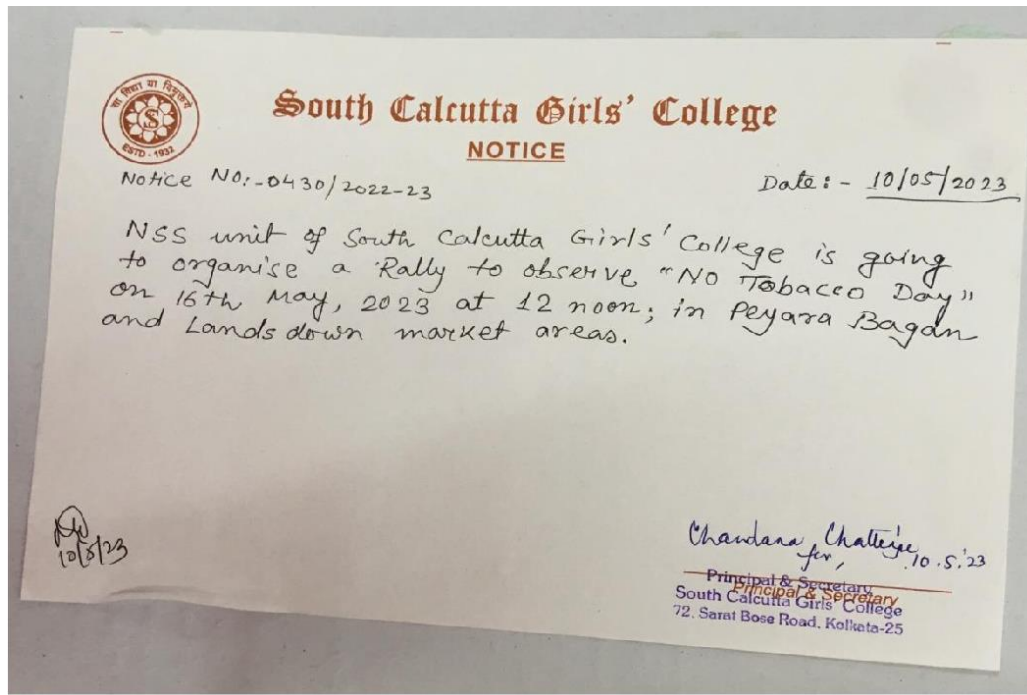 सा विद्या या विमुक्तये
ESTD - 1932
South Calcutta Girls' College
NOTICE
Notice No:-0430/2022-23
Date:- 10/05/2023
NSS unit of South Calcutta Girls' College is going
to organise a Rally to observe "No Tobacco Day"
on 16th May, 2023 at 12 noon; in Peyara Bagan
and Lands down market areas.
10/5/23
Chandana Chatterjee
for, 10.5.'23
Principal & Secretary
Principal & Secretary
South Calcutta Girls' College
72, Sarat Bose Road, Kolkata-25